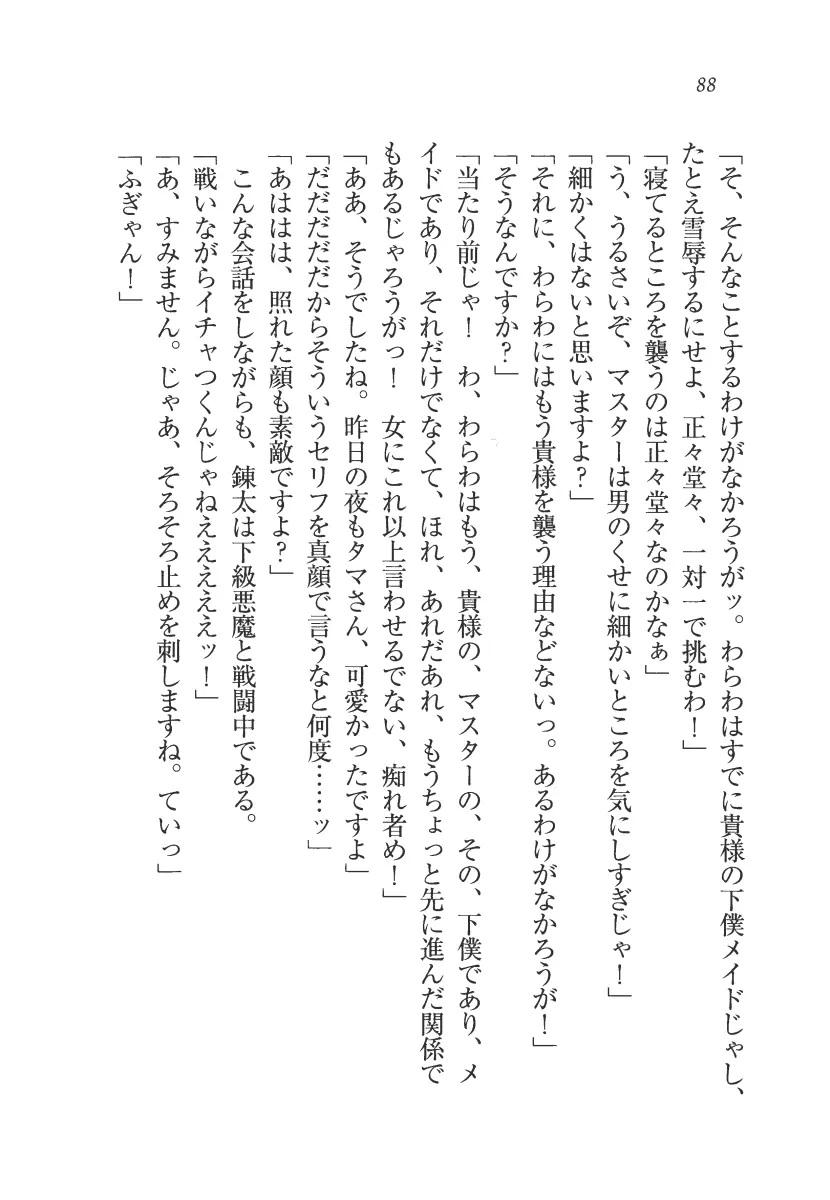 88
「そ、そんなことするわけがなかろうがッ。わらわはすでに貴様の下僕メイドじゃし、
たとえ雪辱するにせよ、正々堂々、一対一で挑むわ！」
「寝てるところを襲うのは正々堂々なのかなぁ」
「う、うるさいぞ、マスターは男のくせに細かいところを気にしすぎじゃ！」
「細かくはないと思いますよ？」
「それに、わらわにはもう貴様を襲う理由などないっ。あるわけがなかろうが！」
「そうなんですか？」
「当たり前じゃ！　わ、わらわはもう、貴様の、マスターの、その、下僕であり、メ
イドであり、それだけでなくて、ほれ、あれだあれ、もうちょっと先に進んだ関係で
もあるじゃろうがっ！　女にこれ以上言わせるでない、痴れ者め！」
「ああ、そうでしたね。昨日の夜もタマさん、可愛かったですよ」
「だだだだだからそういうセリフを真顔で言うなと何度……ッ」
「あははは、照れた顔も素敵ですよ？」
　こんな会話をしながらも、錬太は下級悪魔と戦闘中である。
「戦いながらイチャつくんじゃねえええええッ！」
「あ、すみません。じゃあ、そろそろ止めを刺しますね。ていっ」
「ふぎゃん！」